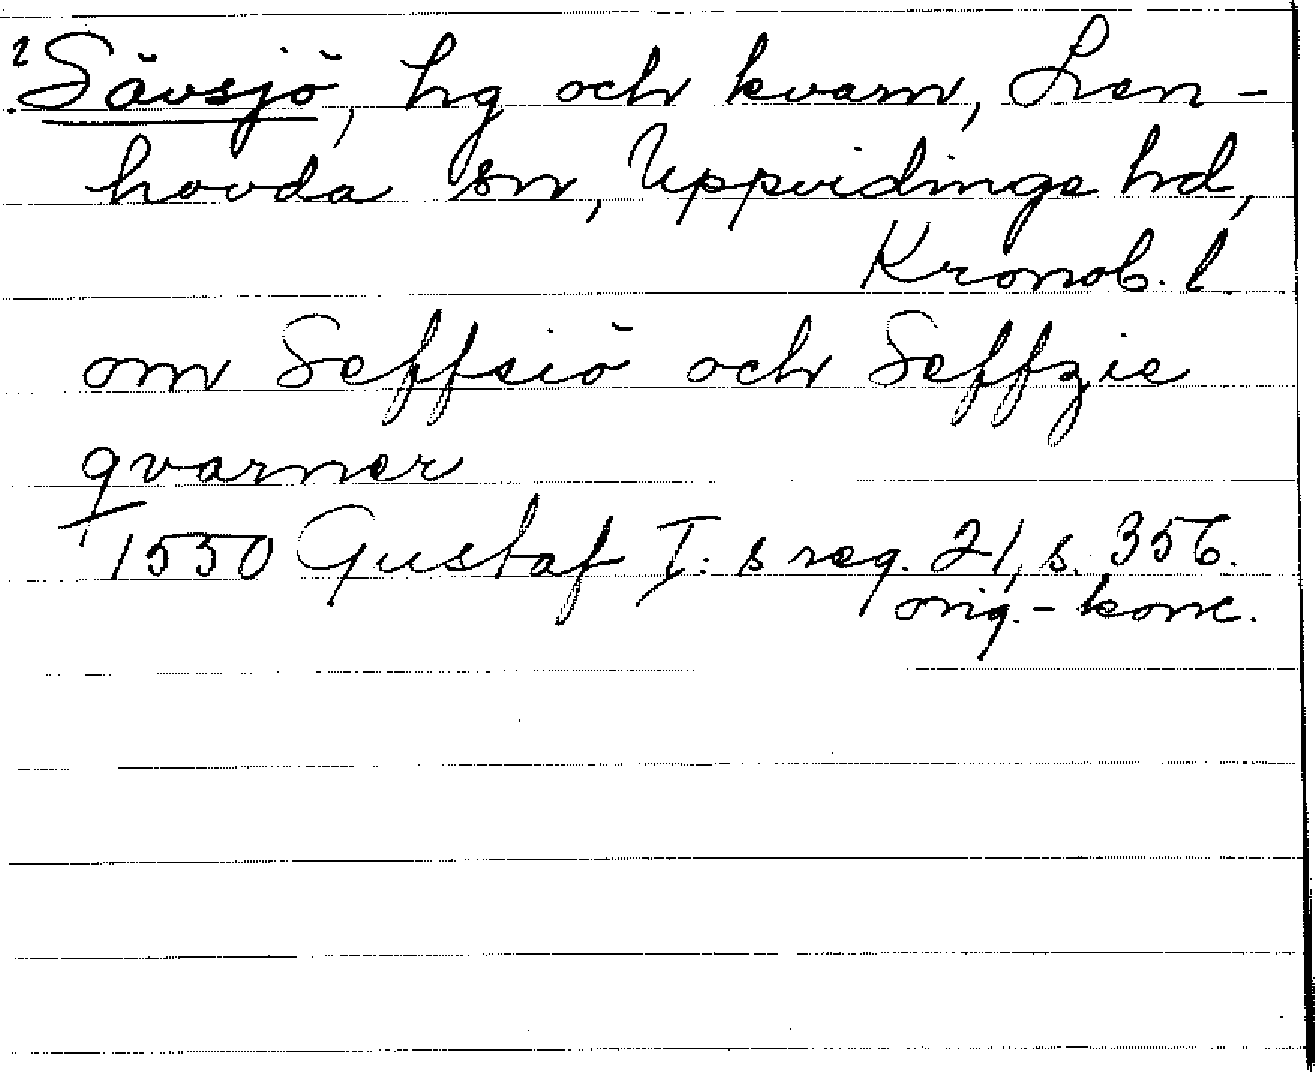 ? Sävsjö, hg och kvarn, Len-
hovda sn, Uppvidinge hd,
Kronob. l.
om Seffsiö och Seffzie
qvarner
1550 Gustaf I:s reg. 21, s. 356.
orig.-konc.